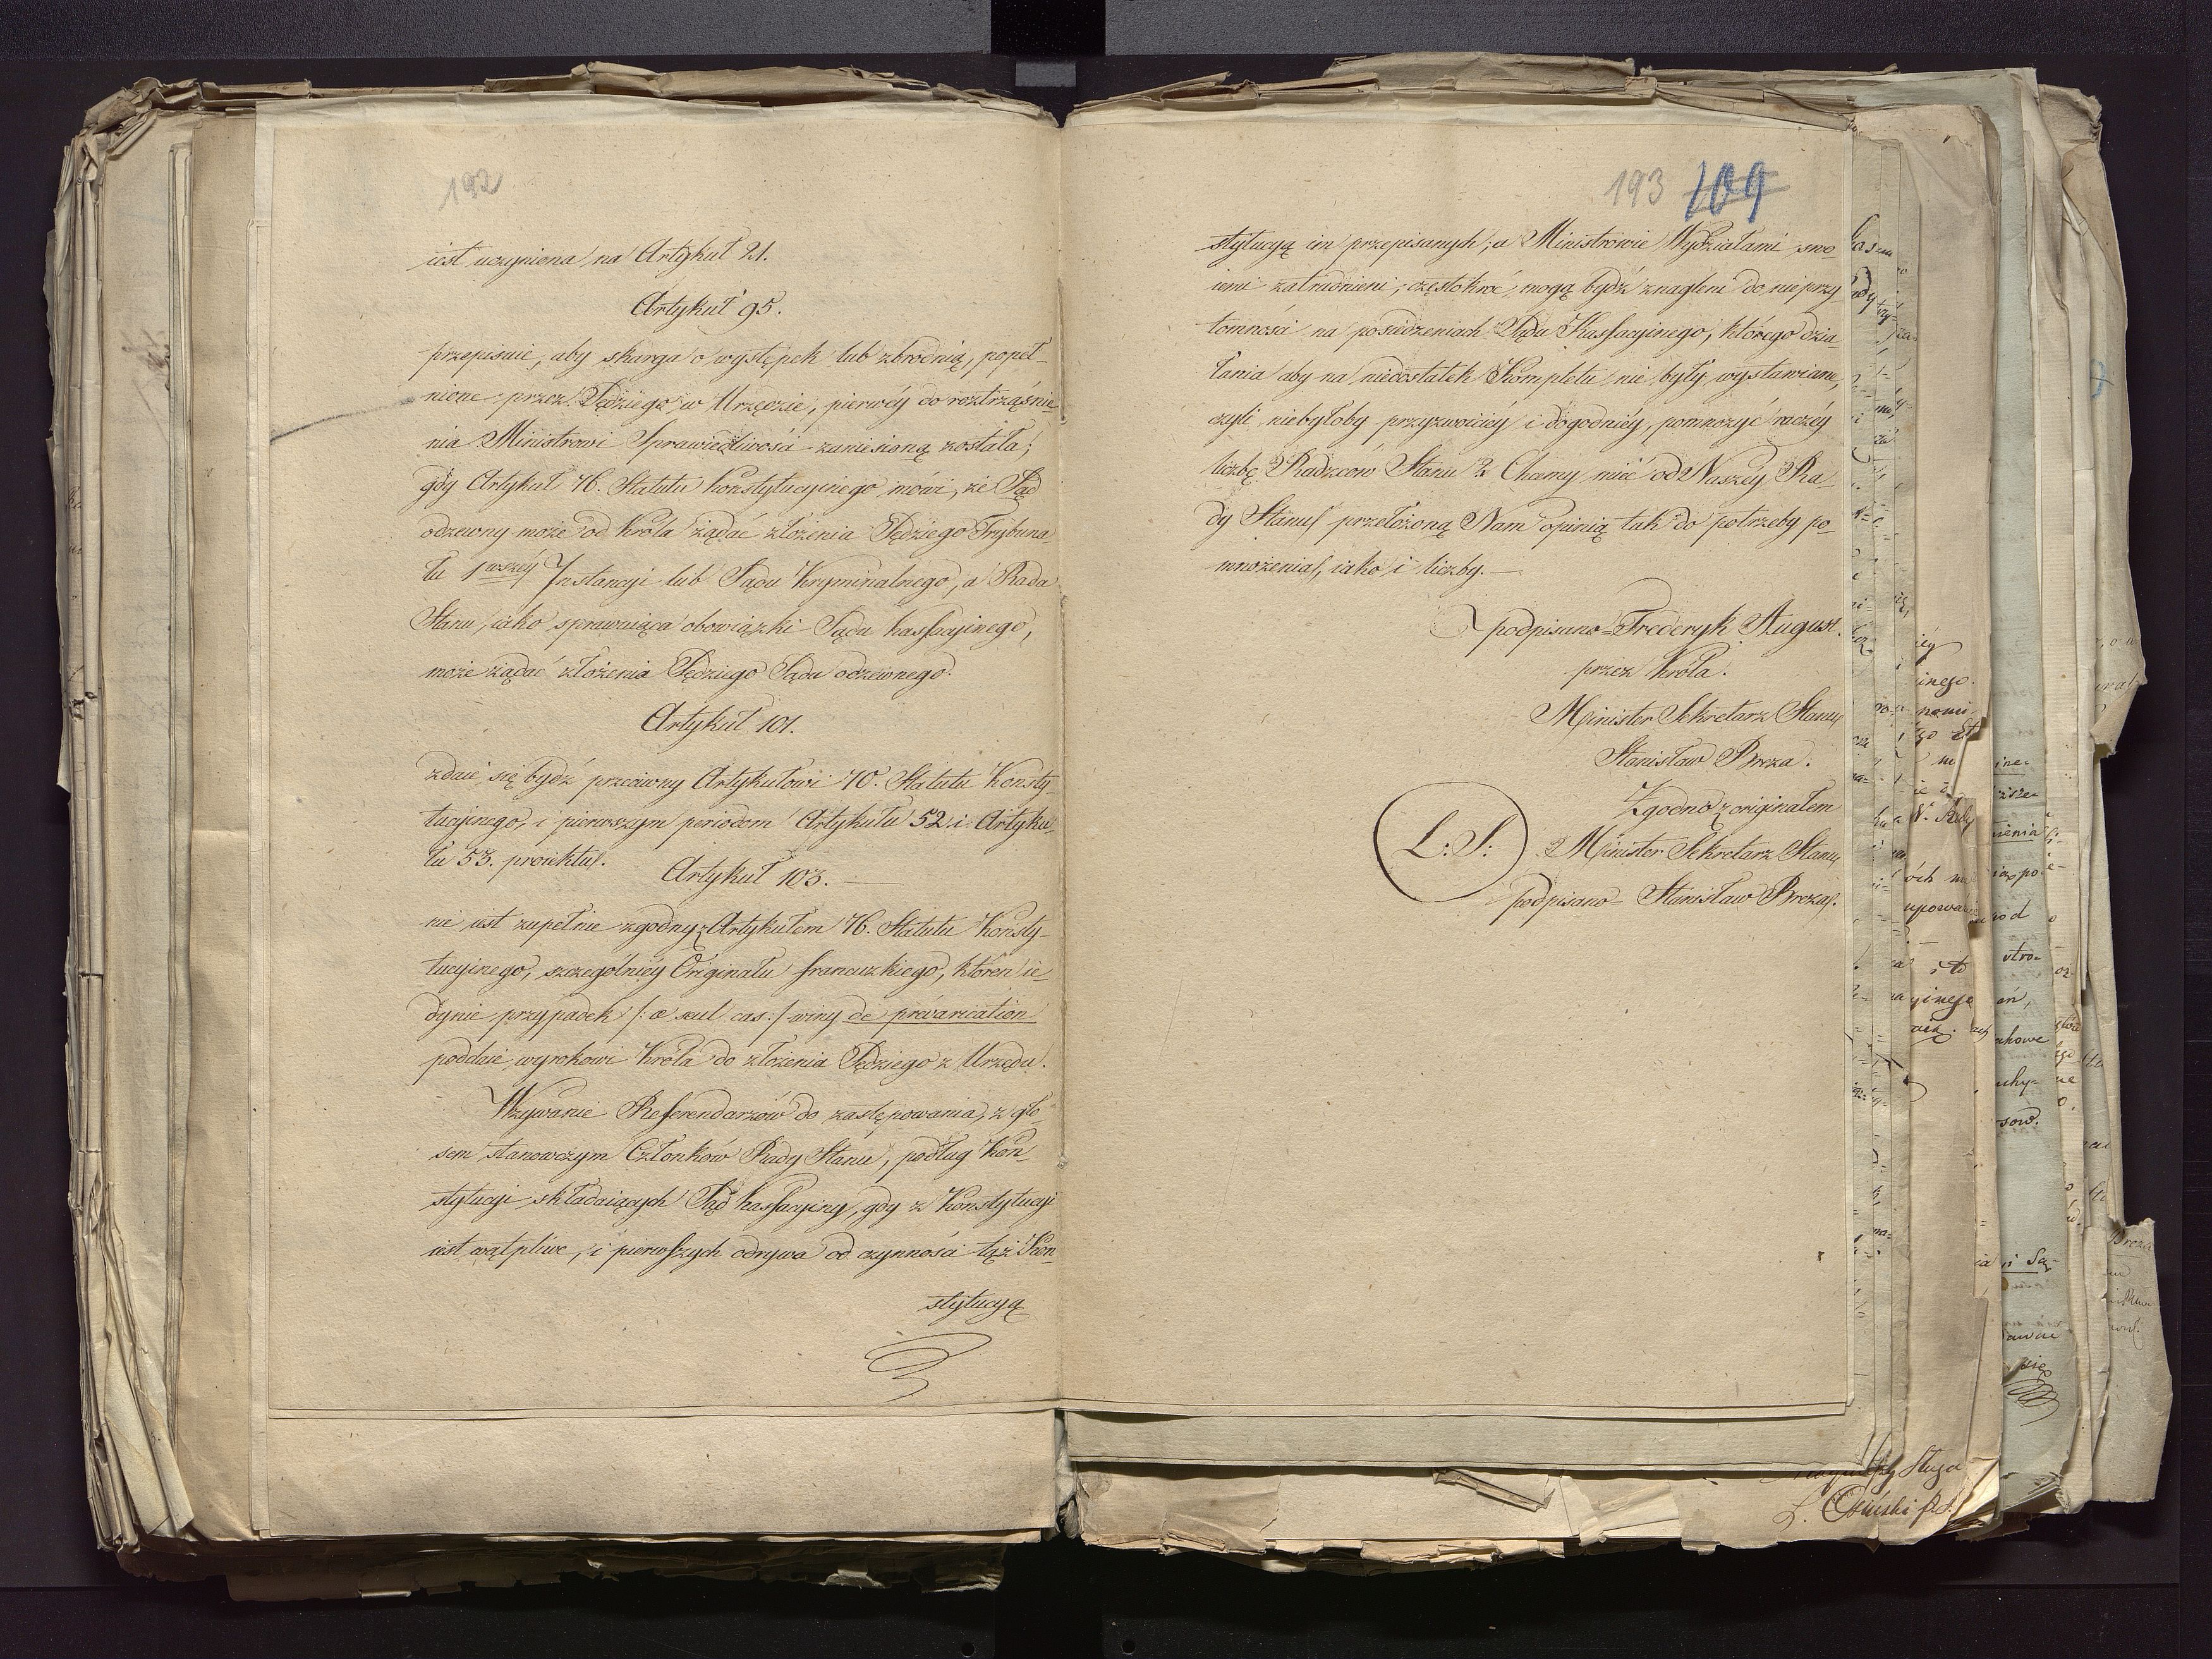 192
iest uczyniona na Artykuł 21.
Artykuł 95.
przepisuie, aby skarga o występek lub zbrodnię, popeł-
nione przez Sędziego w Urzędzie, pierwéy do roztrząśnie-
nia Ministrowi Sprawiedliwości zaniesioną została;
gdy Artykuł 76. Statutu konstytucyinego mówi, że Sąd
odzewny może od Króla żądać złożenia Sędziego Trybuna-
łu 1wszéy Instancyi lub Sądu Kryminalnego, a Rada
Stanu, iako sprawuiąca obowiązki Sądu kassacyinego,
może żądać złożenia Sędziego Sądu odzewnego.
Artykuł 101.
zdaie się bydź przeciwny Artykułowi 70. Statutu Konsty-
tucyinego, i pierwszym periodom Artykułu 52. i Artyku-
łu 53. proiektu.
Artykuł 103. —
nie iest zupełnie zgodny z Artykułem 76. Statutu Konsty-
tucyinego, szczególniéy Originału francuzkiego, któren ie-
dynie przypadek /: le seul cas :/ winy de prévarication
poddaie wyrokowi Króla do złożenia Sędziego z Urzędu.
Wzywanie Referendarzów do zastępowania, z gło-
sem stanowczym Członków Rady Stanu, podług Kon-
stytucyi składaiących Sąd kassacyiny, gdy z Konstytucyi
iest wątpliwe, i pierwszych odrywa od czynności tąż Kon-
stytucyą
193 109
stytucyą im przepisanych, a Ministrowie Wydziałami swo-
iemi zatrudnieni, częstokroć mogą bydź znagleni do nieprzy-
tomności na posiedzeniach Sądu Kassacyinego, którego dzia-
łania aby na niedostatek Kompletu nie były wystawiane,
czyli niebyłoby przyzwoiciéy i dogodniéy, pomnożyć raczéy
liczbę Radzców Stanu? Chcemy mieć od Naszéy Ra-
dy Stanu przełożoną Nam opinią tak do potrzeby po-
mnożenia, iako i liczby. —
podpisano = Frederyk August.
przez Króla.
Minister Sekretarz Stanu
Stanisław Breza.
Zgodno z originałem
L: S:
Minister Sekretarz Stanu
podpisano = Stanisław Breza.
Sługa
L. Osiński